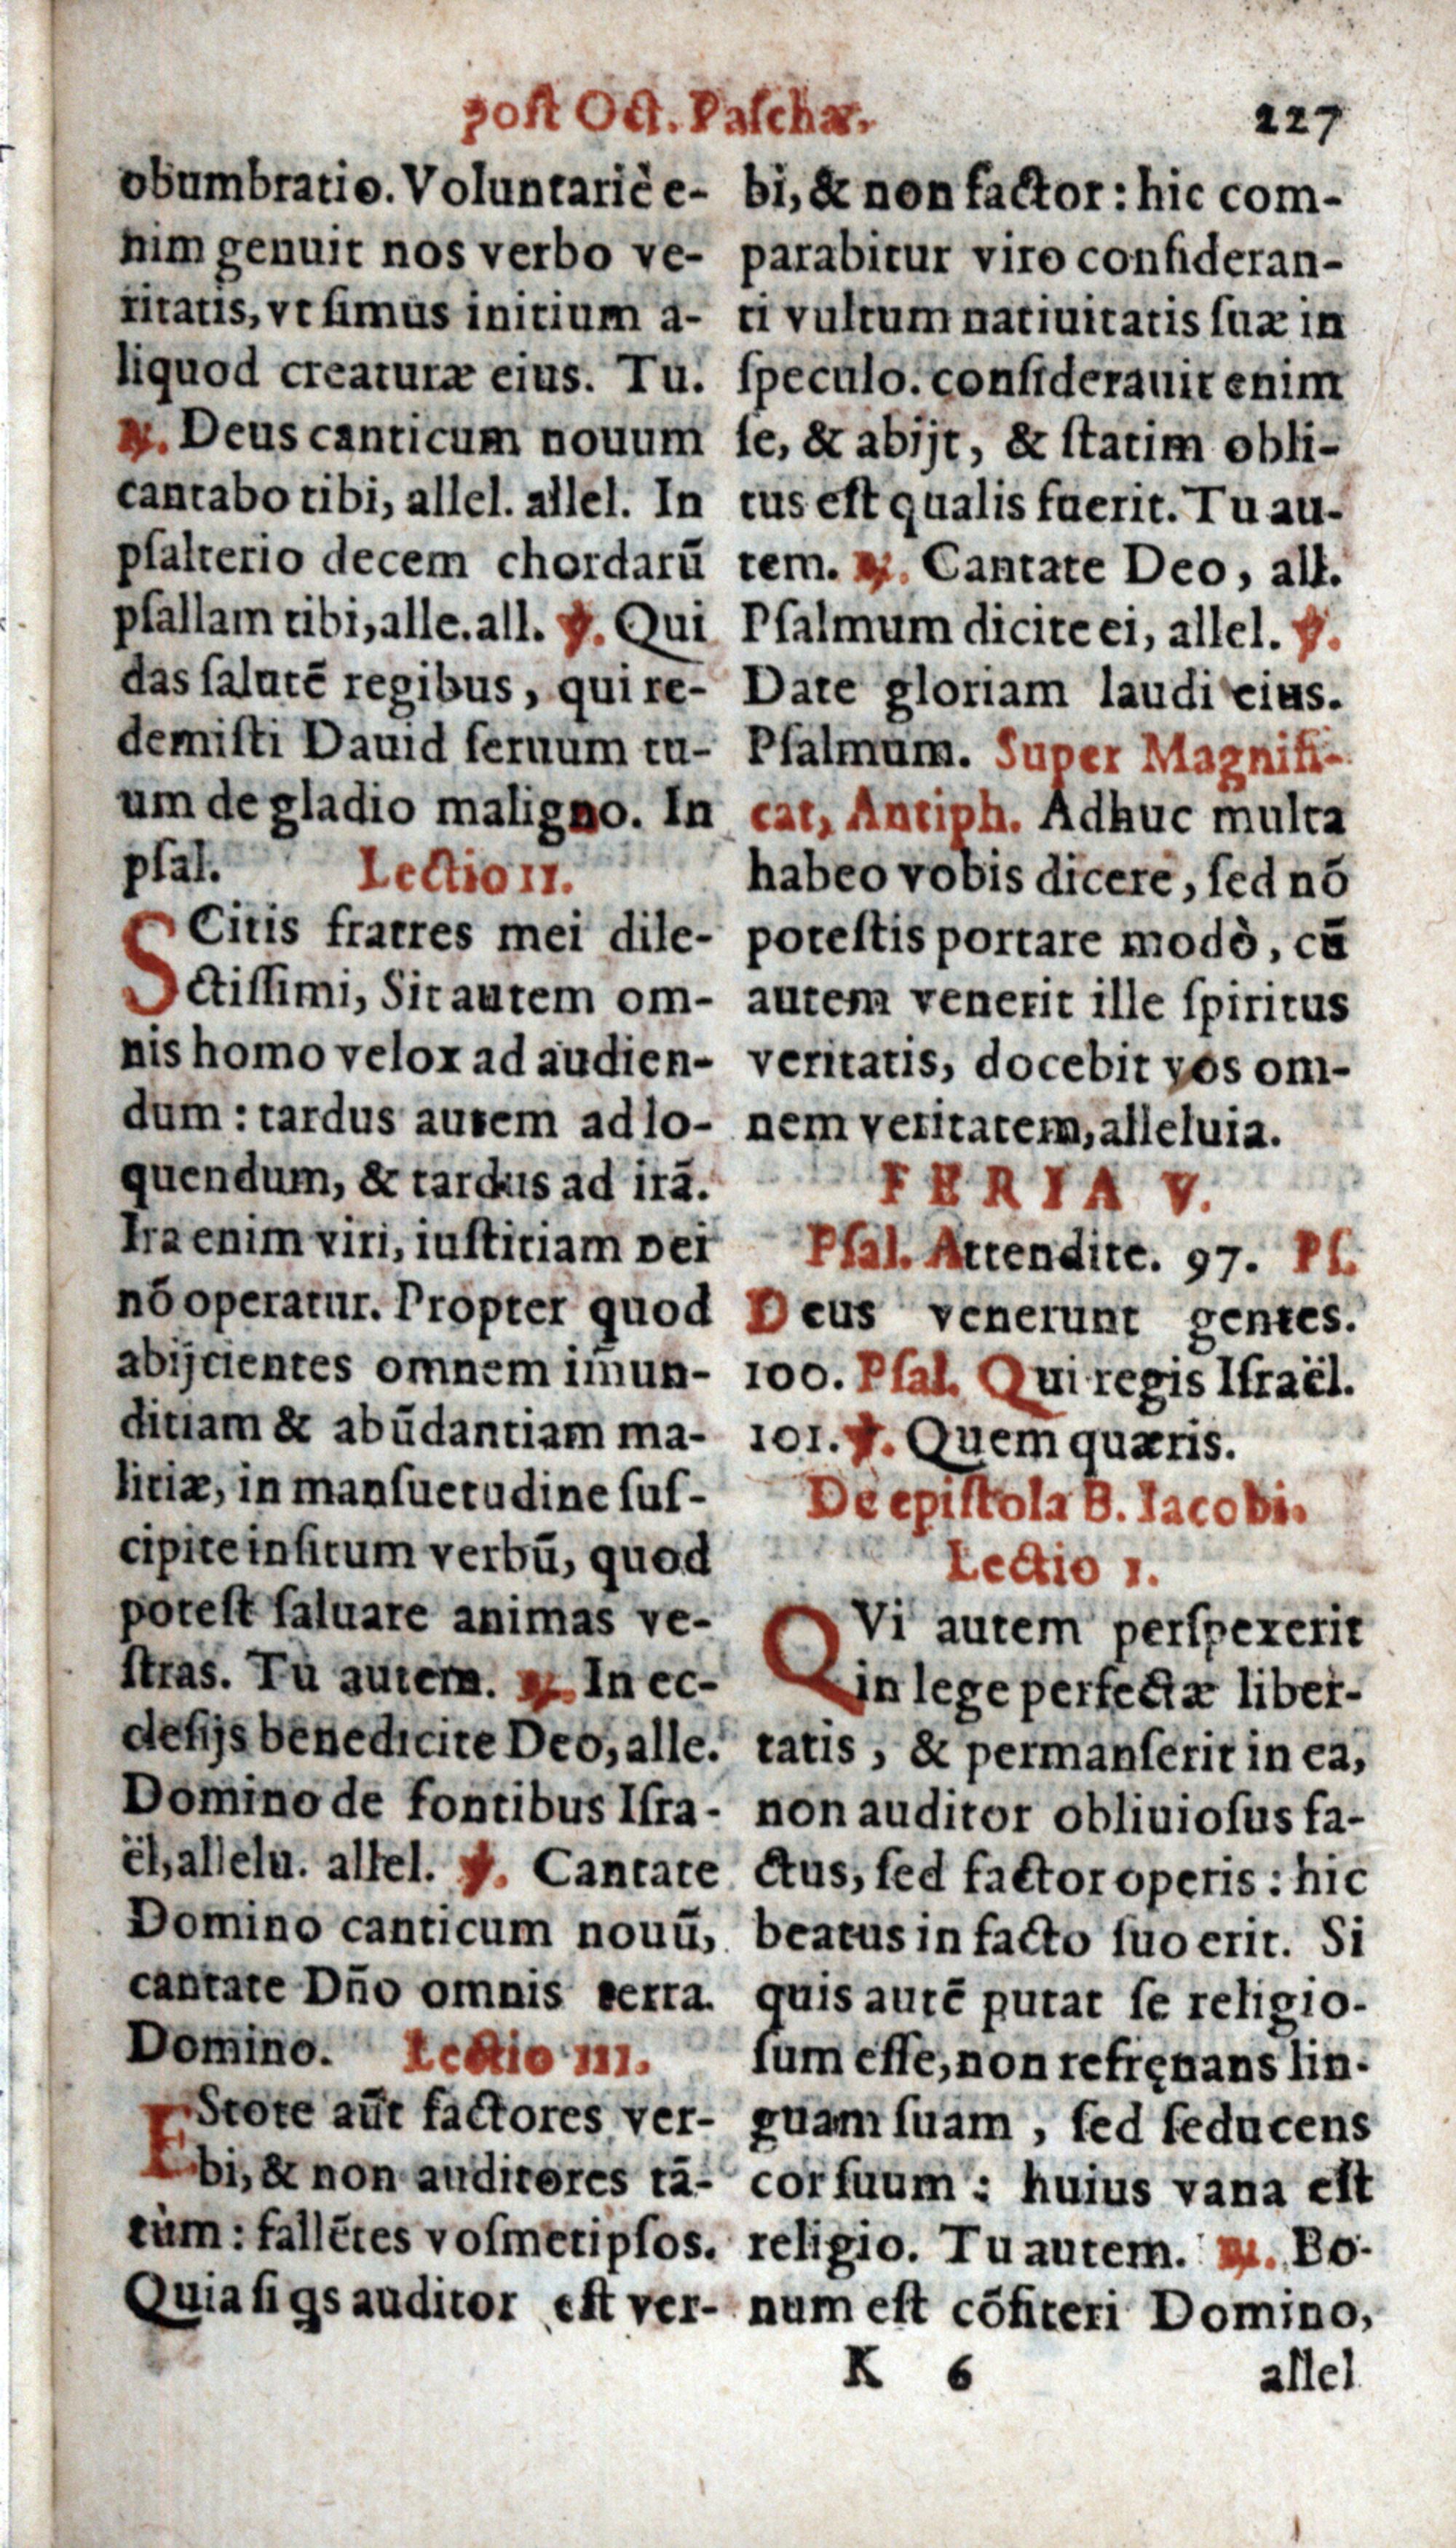 post Oct. Paschæ.
227
obumbratio. Voluntariè e-
nim genuit nos verbo ve-
ritatis, vt simus initium a-
liquod creaturæ eius. Tu.
℟. Deus canticum nouum
cantabo tibi, allel. allel. In
psalterio decem chordarū
psallam tibi, alle. all. ℣. Qui
das salutē regibus, qui re-
demisti Dauid seruum tu-
um de gladio maligno. In
psal. Lectio II.
SCitis fratres mei dile-
ctissimi, Sit autem om-
nis homo velox ad audien-
dum: tardus autem ad lo-
quendum, & tardus ad irā.
Ira enim viri, iustitiam Dei
nō operatur. Propter quod
abijcientes omnem im̄un-
ditiam & abūdantiam ma-
litiæ, in mansuetudine sus-
cipite insitum verbū, quod
potest saluare animas ve-
stras. Tu autem. ℟. In ec-
clesijs benedicite Deo, alle.
Domino de fontibus Isra-
ël, allelu. allel. ℣. Cantate
Domino canticum nouū,
cantate Dño omnis terra.
Domino. Lectio III.
EStote aūt factores ver-
bi, & non auditores tā-
tùm: fallētes vosmetipsos.
Quia si qs auditor est ver-
bi, & non factor: hic com-
parabitur viro consideran-
ti vultum natiuitatis suæ in
speculo. considerauit enim
se, & abijt, & statim obli-
tus est qualis fuerit. Tu au-
tem. ℟. Cantate Deo, all.
Psalmum dicite ei, allel. ℣.
Date gloriam laudi eius.
Psalmum. Super Magnifi-
cat, Antiph. Adhuc multa
habeo vobis dicere, sed nō
potestis portare modò, cū
autem venerit ille spiritus
veritatis, docebit vos om-
nem veritatem, alleluia.
FERIA V.
Psal. Attendite. 97. Ps.
Deus venerunt gentes.
100. Psal. Qui regis Israël.
101. ℣. Quem quæris.
De epistola B. Iacobi.
Lectio I.
QVi autem perspexerit
in lege perfectæ liber-
tatis, & permanserit in ea,
non auditor obliuiosus fa-
ctus, sed factor operis: hic
beatus in facto suo erit. Si
quis autē putat se religio-
sum esse, non refręnans lin-
guam suam, sed seducens
cor suum: huius vana est
religio. Tu autem. ℟. Bo-
num est cōfiteri Domino,
K 6
allel